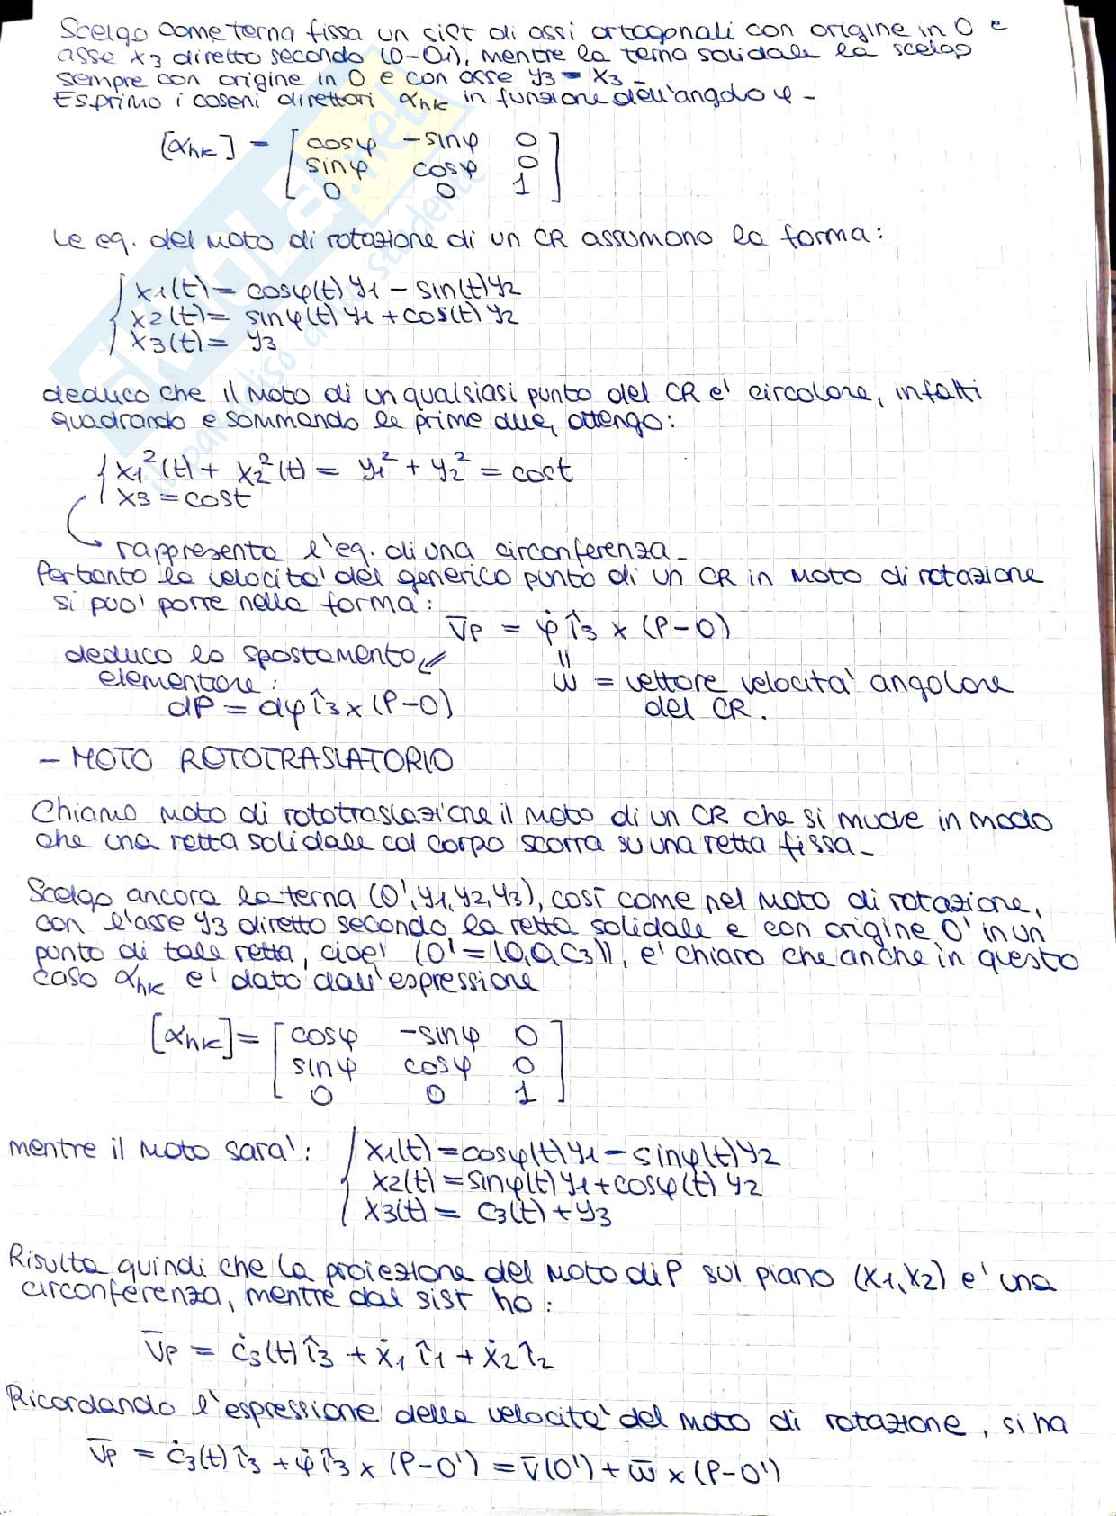 Scelgo come terna fissa un sist di assi ortogonali con origine in O e
asse x3 diretto secondo (O-O1), mentre la terna solidale la scelgo
sempre con origine in O e con asse y3 = x3 -
Esprimo i coseni direttori αhk in funzione dell'angolo φ -
[αhk] = [ cosφ -sinφ 0
sinφ cosφ 0
0 0 1 ]
Le eq. del moto di rotazione di un CR assumono la forma:
{ x1(t) = cosφ(t) y1 - sin(t) y2
x2(t) = sinφ(t) y1 + cos(t) y2
x3(t) = y3
deduco che il moto di un qualsiasi punto del CR e' circolare, infatti
quadrando e sommando le prime due, ottengo:
{ x1²(t) + x2²(t) = y1² + y2² = cost
x3 = cost
→ rappresenta l'eq. di una circonferenza -
Pertanto la velocita' del generico punto di un CR in moto di rotazione
si puo' porre nella forma:
v̅p = φ̇ î3 x (P-O)
deduco lo spostamento ⇙ "
elementare: ω̅ = vettore velocita' angolare
dP = dφ î3 x (P-O) del CR.
- MOTO ROTOTRASLATORIO
Chiamo moto di rototraslazione il moto di un CR che si muove in modo
che una retta solidale col corpo scorra su una retta fissa -
Scelgo ancora la terna (O', y1, y2, y3), così come nel moto di rotazione,
con l'asse y3 diretto secondo la retta solidale e con origine O' in un
punto di tale retta, cioe' (O' = (0,0,c3)), e' chiaro che anche in questo
caso αhk e' dato dall'espressione
[αhk] = [ cosφ -sinφ 0
sinφ cosφ 0
0 0 1 ]
mentre il moto sara': { x1(t) = cosφ(t) y1 - sinφ(t) y2
x2(t) = sinφ(t) y1 + cosφ(t) y2
x3(t) = c3(t) + y3
Risulta quindi che la proiezione del moto di P sul piano (x1, x2) e' una
circonferenza, mentre dal sist ho:
v̅p = ċ3(t) î3 + ẋ1 î1 + ẋ2 î2
Ricordando l'espressione della velocita' del moto di rotazione, si ha
v̅p = ċ3(t) î3 + φ̇ î3 x (P-O') = v̅(O') + ω̅ x (P-O')